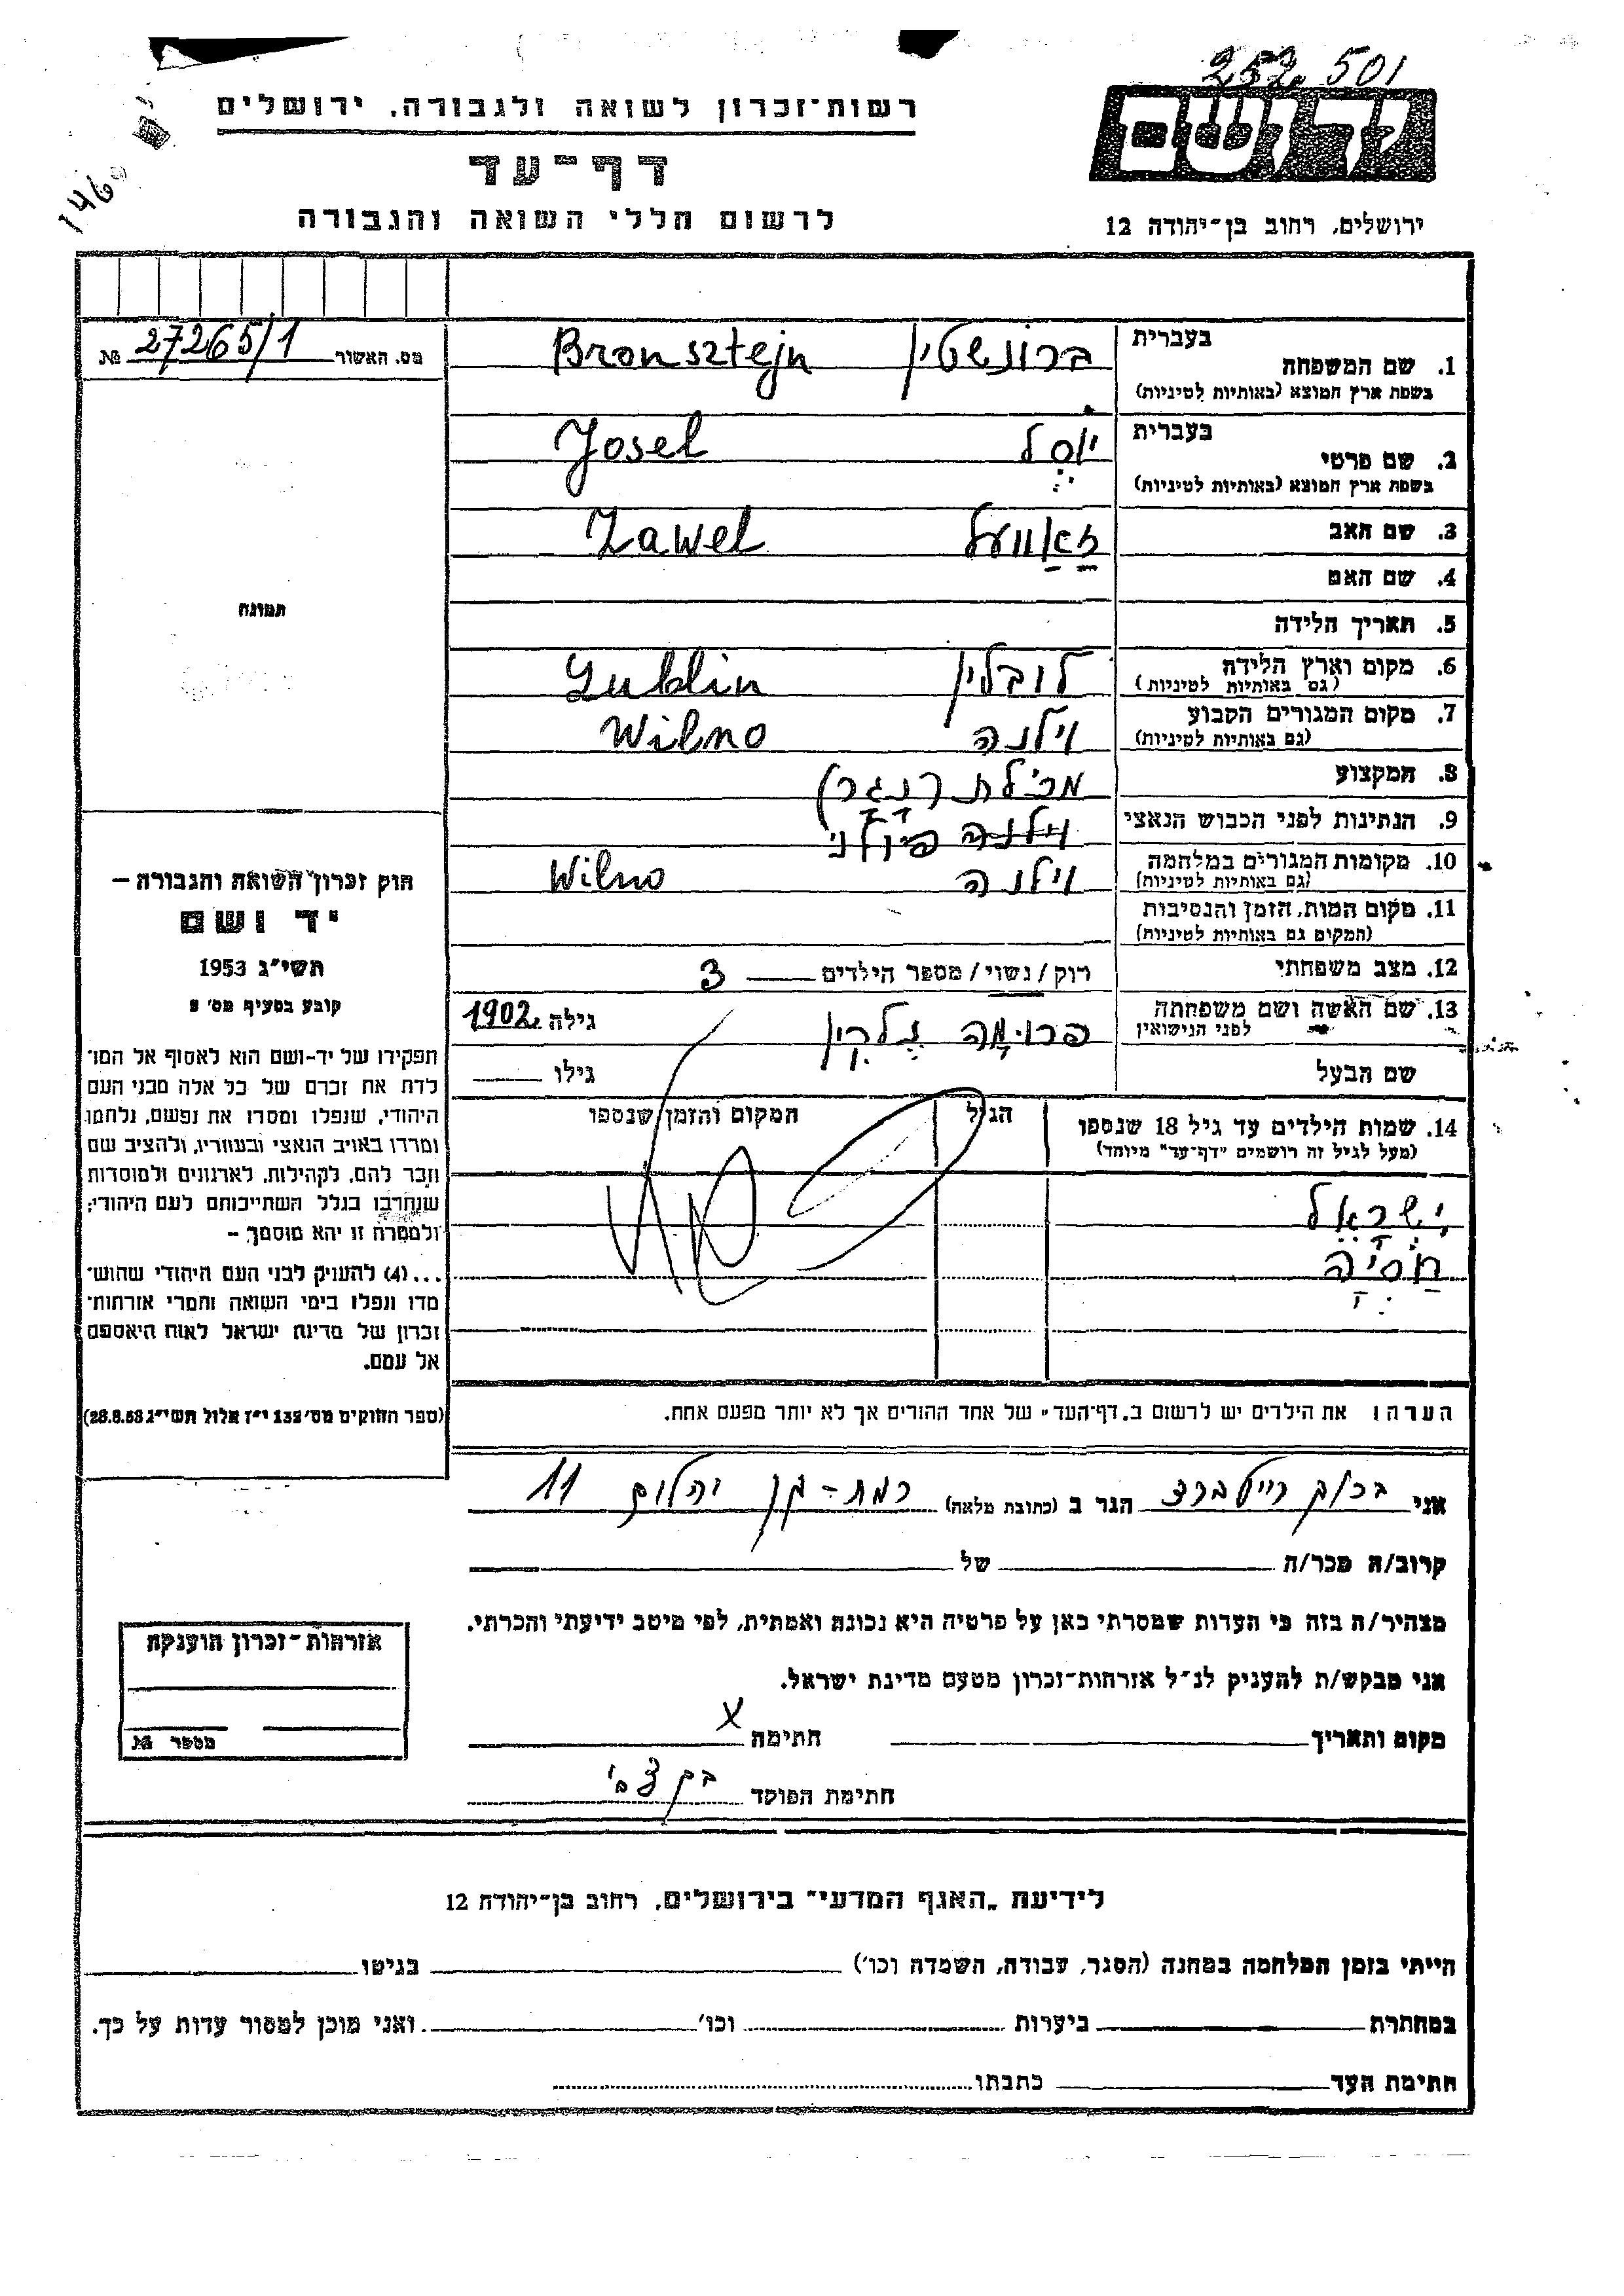 252, 501
רשות-זכרון לשואה ולגבורה, ירושלים
דף-עד
לרשום חללי השואה והגבורה
ירושלים, רחוב בן-יהודה 12
146
מס. האשור 27265/1 №
1. שם המשפחה בעברית ברונשטין Bronsztejn
בשפת ארץ המוצא (באותיות לטיניות)
2. שם פרטי בעברית יוסל Josel
בשפת ארץ המוצא (באותיות לטיניות)
3. שם האב זאוועל Zawel
4. שם האם
5. תאריך הלידה
6. מקום וארץ הלידה לובלין Lublin
(גם באותיות לטיניות)
7. מקום המגורים הקבוע וילנה Wilno
(גם באותיות לטיניות)
8. המקצוע (נגר)
9. הנתינות לפני הכבוש הנאצי וילנה פולני
10. מקומות המגורים במלחמה וילנה Wilno
(גם באותיות לטיניות)
11. מקום המות, הזמן והנסיבות
(המקום גם באותיות לטיניות)
12. מצב משפחתי רווק / נשוי / מספר הילדים 3
13. שם האשה ושם משפחתה פרומה גילה 1902
לפני הנישואין
שם הבעל גילו
14. שמות הילדים עד גיל 18 שנספו הגיל המקום והזמן שנספו
(מעל לגיל זה רושמים "דף-עד" מיוחד)
ישראל
חסיה
הערה: את הילדים יש לרשום ב"דף-העד" של אחד ההורים אך לא יותר מפעם אחת.
תמונה
חוק זכרון השואה והגבורה –
יד ושם
תשי"ג 1953
קובע בסעיף מס' 2
תפקידו של יד-ושם הוא לאסוף אל המו־
לדת את זכרם של כל אלה מבני העם
היהודי, שנפלו ומסרו את נפשם, נלחמו
ומרדו באויב הנאצי ובעוזריו, ולהציב שם
וזכר להם, לקהילות, לארגונים ולמוסדות
שנחרבו בגלל השתייכותם לעם היהודי;
ולמטרה זו יהא מוסמך –
...(4) להעניק לבני העם היהודי שהוש־
מדו ונפלו בימי השואה והמרי אזרחות־
זכרון של מדינת ישראל לאות היאספם
אל עמם.
(ספר החוקים מס' 132 י"ז אלול תשי"ג 28.8.53)
אני ברוך הגר ב (כתובת מלאה) רמת-גן יהלום 11
קרוב/ה מכר/ה של
מצהיר/ה בזה כי העדות שמסרתי כאן על פרטיה היא נכונה ואמתית, לפי מיטב ידיעתי והכרתי.
אני מבקש/ת להעניק לנ"ל אזרחות-זכרון מטעם מדינת ישראל.
מקום ותאריך חתימה X
חתימת הפוקד בן צבי
אזרחות-זכרון הוענקה
מספר №
לידיעת "האגף המדעי" בירושלים, רחוב בן-יהודה 12
הייתי בזמן המלחמה במחנה (הסגר, עבודה, השמדה וכו') בגיטו
במחתרת ביערות וכו' ואני מוכן למסור עדות על כך.
חתימת העד כתבתו